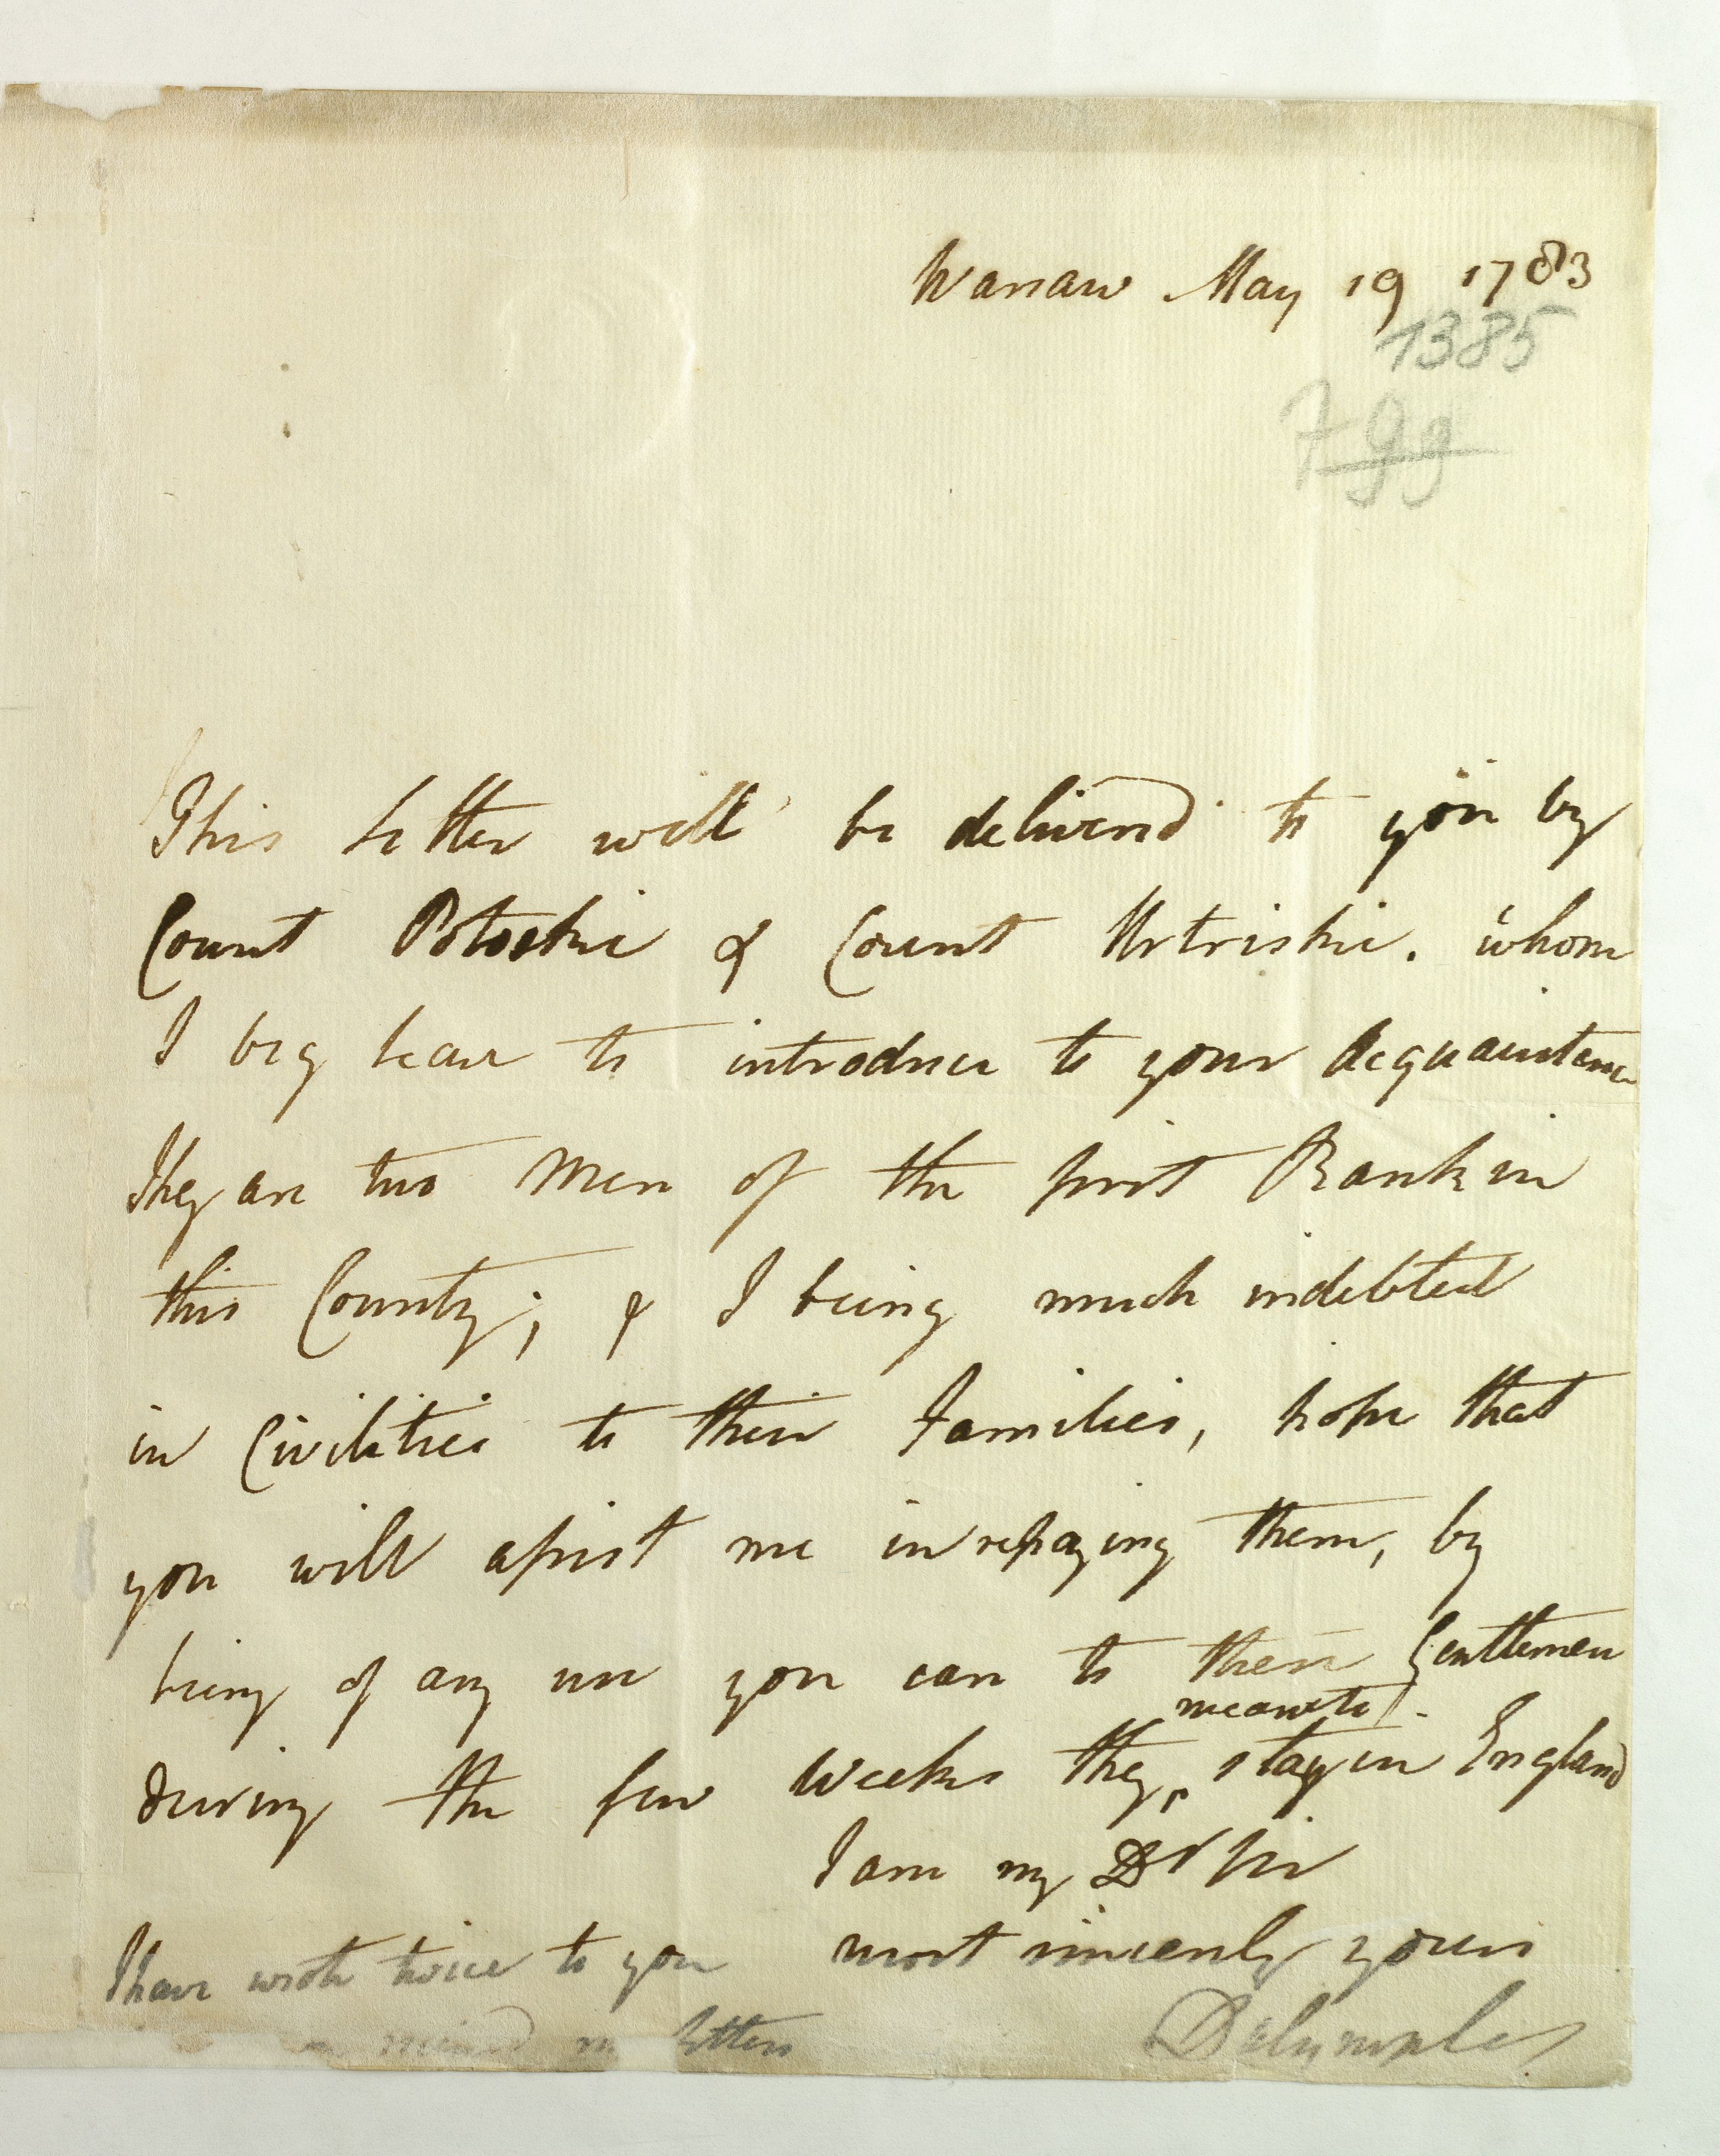 Warsaw May 19 1783
1385
799
This Letter will be deliverd to you by
Count Potoskie & Count Urtriskie. whom
I beg leave to introduce to your Acquaintance
They are two Men of the first Rank in
this Country; & I being much indebted
in Civilities to their Families, hope that
you will assist me in repaying them, by
being of any use you can to these Gentlemen
meant to
during the few Weeks they stay in England
I am my Dr Sir
I have wrote twice to you most sincerely yours
letters Dalrymple